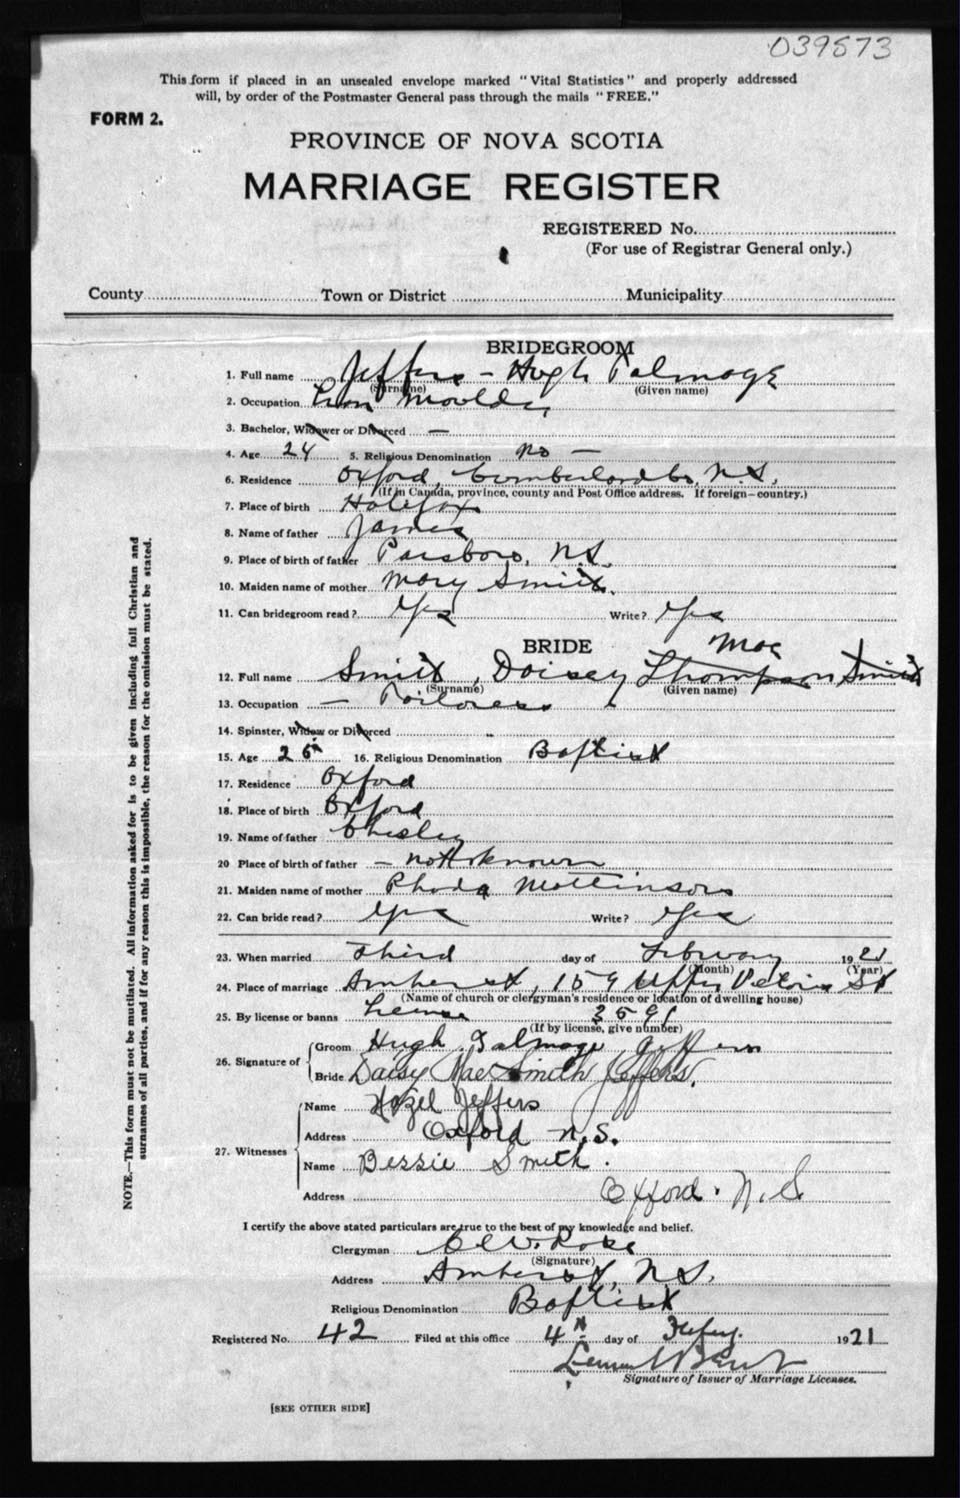 039573
This form if placed in an unsealed envelope marked "Vital Statistics" and properly addressed
will, by order of the Postmaster General pass through the mails "FREE."
FORM 2.
PROVINCE OF NOVA SCOTIA
MARRIAGE REGISTER
REGISTERED No.
(For use of Registrar General only.)
County Town or District Municipality
BRIDEGROOM
1. Full name Jeffers - Hugh Talmage
(Surname) (Given name)
2. Occupation Iron Moulder
3. Bachelor, Widower or Divorced —
4. Age 24 5. Religious Denomination No —
6. Residence Oxford, Cumberland Co, N.S.
(If in Canada, province, county and Post Office address. If foreign—country.)
7. Place of birth Halifax
8. Name of father James
9. Place of birth of father Parsboro, N.S.
10. Maiden name of mother Mary Smith
11. Can bridegroom read? Yes Write? Yes
BRIDE
Mae
12. Full name Smith, Daisey Thompson Smith
(Surname) (Given name)
13. Occupation — Tailoress
14. Spinster, Widow or Divorced
15. Age 26 16. Religious Denomination Baptist
17. Residence Oxford
18. Place of birth Oxford
19. Name of father Chesley
20 Place of birth of father — not known
21. Maiden name of mother Rhoda Mattinson
22. Can bride read? Yes Write? Yes
23. When married Third day of February 1921
(Month) (Year)
24. Place of marriage Amherst, 159 Upper Victoria St
(Name of church or clergyman's residence or location of dwelling house)
25. By license or banns License 3591
(If by license, give number)
26. Signature of Groom Hugh Talmage Jeffers
Bride Daisy Mae Smith Jeffers.
27. Witnesses
Name Hazel Jeffers
Address Oxford N.S.
Name Bessie Smith.
Address Oxford. N.S
I certify the above stated particulars are true to the best of my knowledge and belief.
Clergyman Rose
(Signature)
Address Amherst, N.S.
Religious Denomination Baptist
Registered No. 42 Filed at this office 4th day of Feby. 1921
Signature of Issuer of Marriage Licenses.
[SEE OTHER SIDE]
NOTE.—This form must not be mutilated. All information asked for is to be given including full Christian and
surnames of all parties, and if for any reason this is impossible, the reason for the omission must be stated.